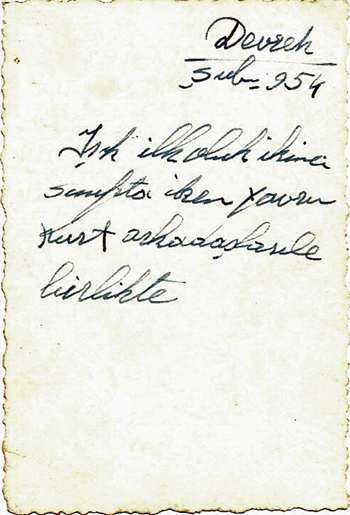 Devrek
Şub. 954
ilk okul ikinci
sınıfta iken Yavru
Kurt arkadaşlarile
birlikte